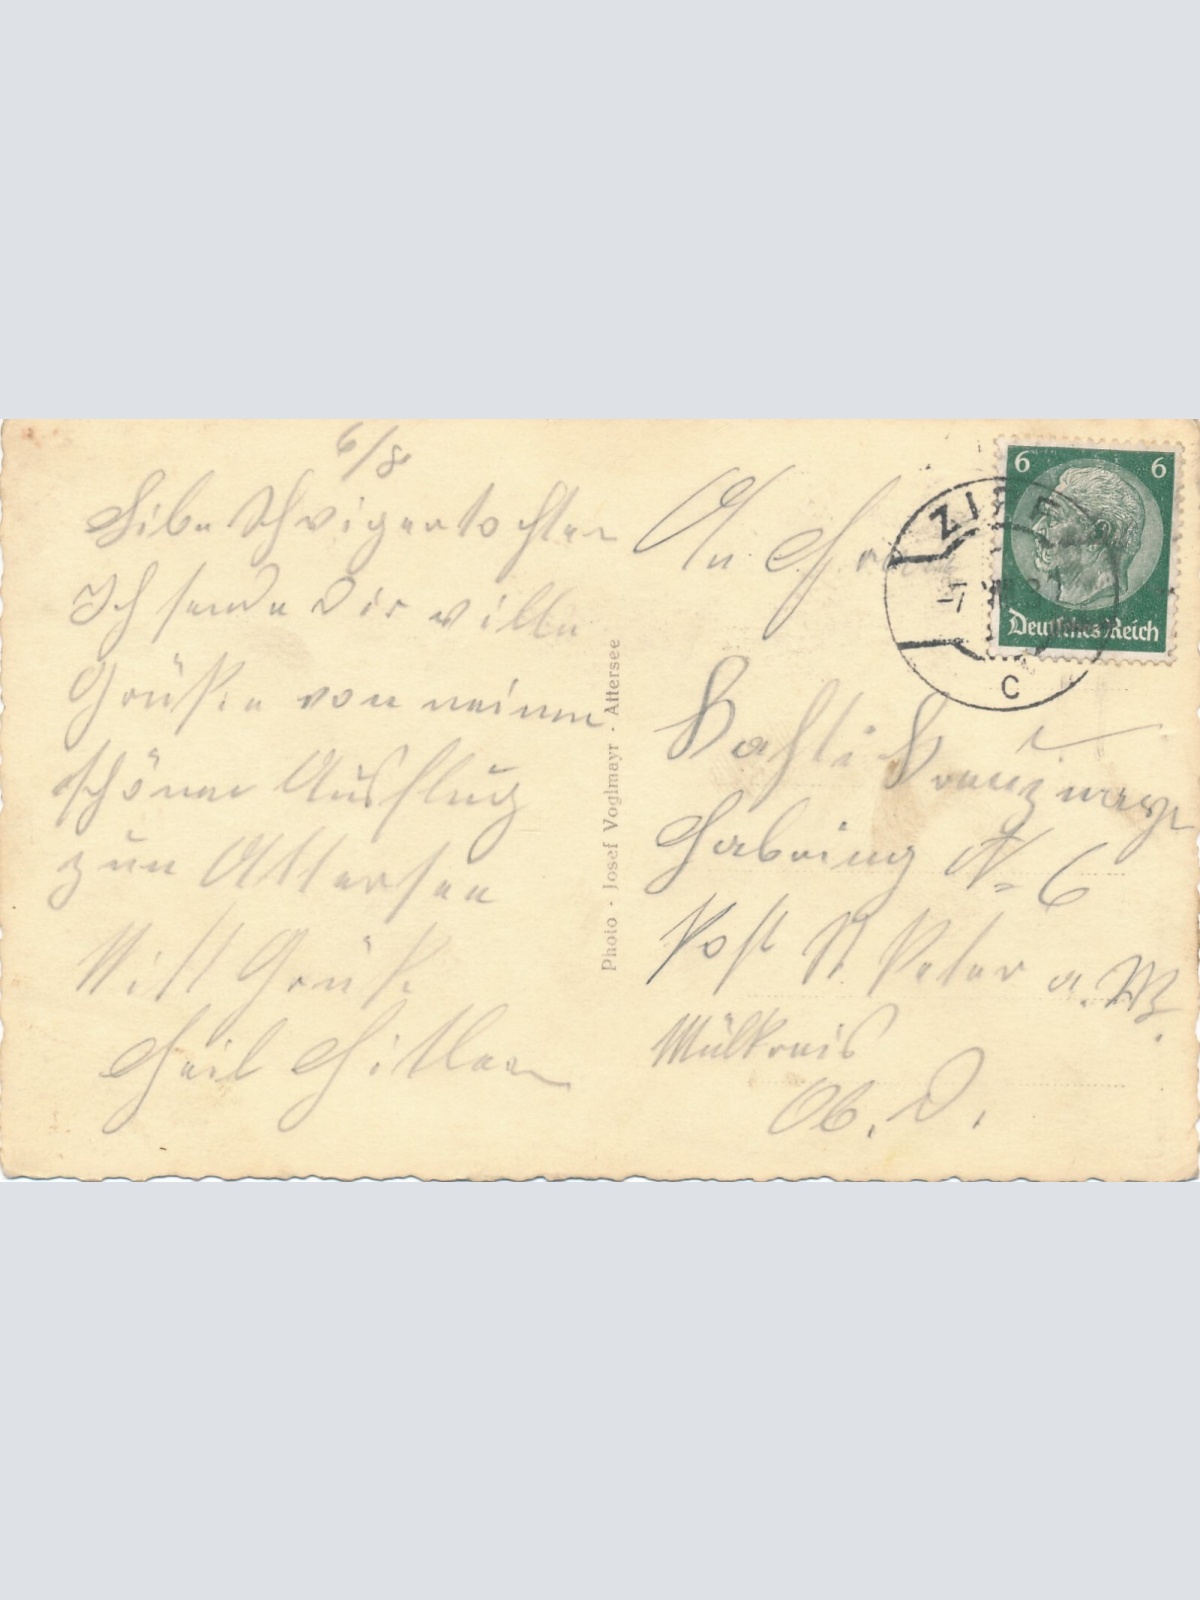 6/8
Libe Schvigertochter
Ich sende Dir ville
Grüße von meinem
schönen Ausflug
zum Attersee
Mitt Gruß
Heil Hitler
Photo · Josef Voglmayr · Attersee
An
Kreuzmayr
Habring N= 6
Post St. Peter a. W.
Mülkreis
Ob. D.
6 6
Deutsches Reich
-7
C